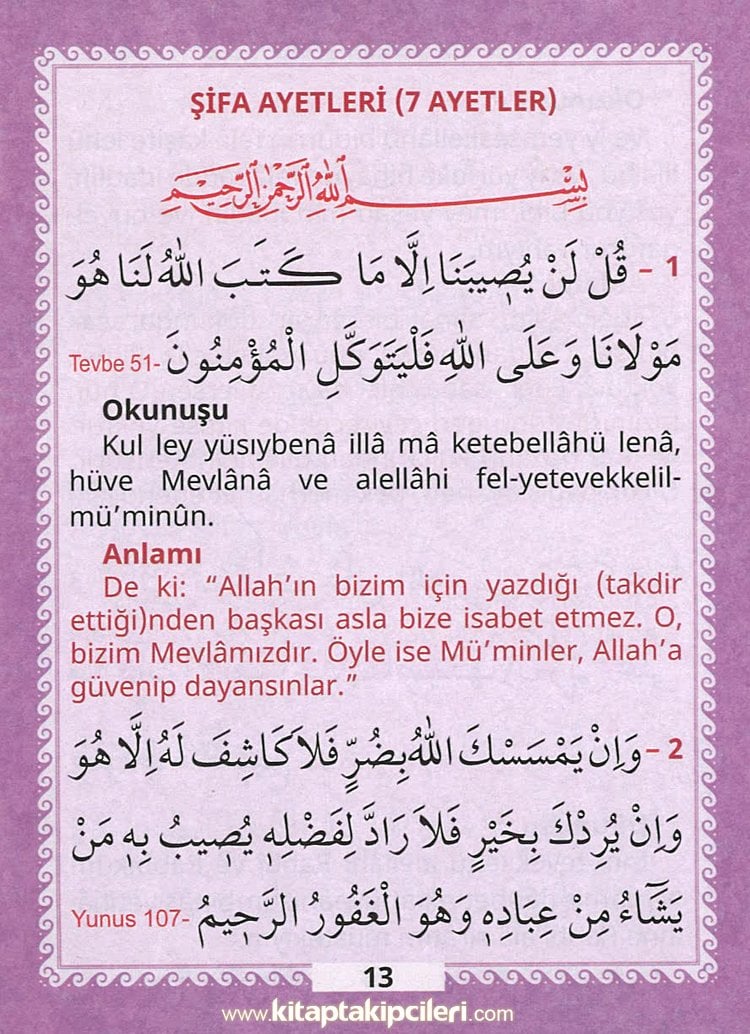 ŞİFA AYETLERİ (7 AYETLER)
بِسْمِ اللّٰهِ الرَّحْمٰنِ الرَّحٖيمِ
1 – قُلْ لَنْ يُصٖيبَنَا اِلَّا مَا كَتَبَ اللّٰهُ لَنَا هُوَ
مَوْلَانَا وَعَلَى اللّٰهِ فَلْيَتَوَكَّلِ الْمُؤْمِنُونَ Tevbe 51-
Okunuşu
Kul ley yüsıybenâ illâ mâ ketebellâhü lenâ,
hüve Mevlânâ ve alellâhi fel-yetevekkelil-
mü’minûn.
Anlamı
De ki: “Allah’ın bizim için yazdığı (takdir
ettiği)nden başkası asla bize isabet etmez. O,
bizim Mevlâmızdır. Öyle ise Mü’minler, Allah’a
güvenip dayansınlar.”
2 – وَاِنْ يَمْسَسْكَ اللّٰهُ بِضُرٍّ فَلَا كَاشِفَ لَهُ اِلَّا هُوَ
وَاِنْ يُرِدْكَ بِخَيْرٍ فَلَا رَادَّ لِفَضْلِهٖ يُصٖيبُ بِهٖ مَنْ
يَشَٓاءُ مِنْ عِبَادِهٖ وَهُوَ الْغَفُورُ الرَّحٖيمُ Yunus 107-
13
www.kitaptakipcileri.com